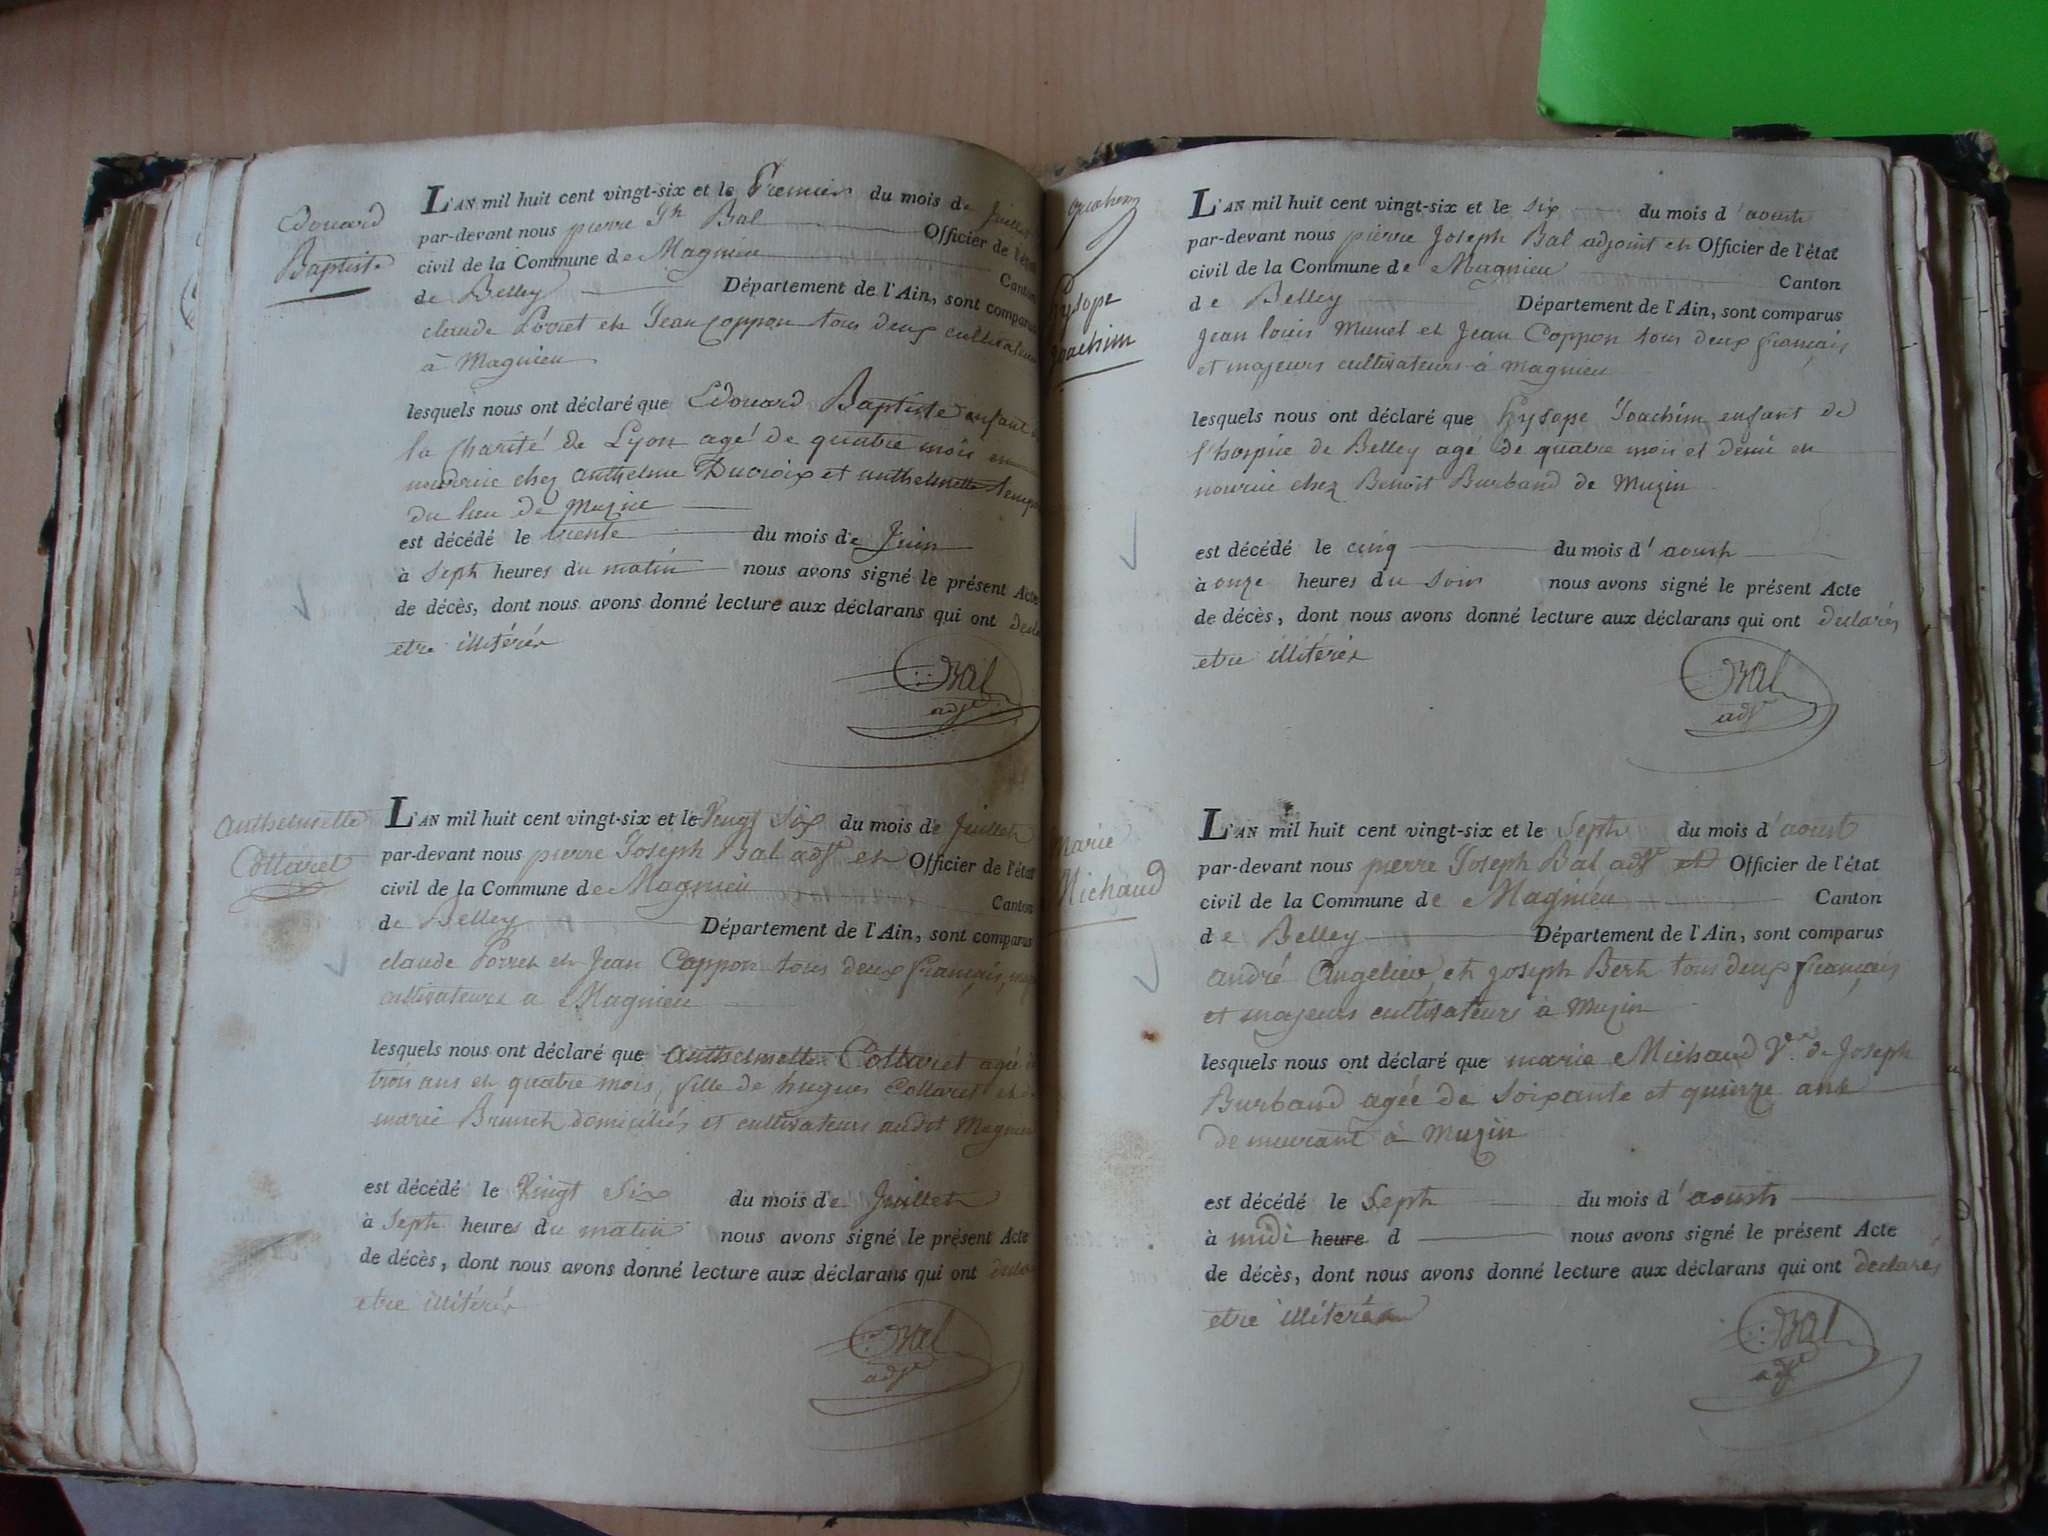 Edouard
Baptiste
L'AN mil huit cent vingt-six et le Premier du mois de Juillet
par-devant nous pierre Jh Bal Officier de l'état
civil de la Commune de Magnieu Canton
de Belley Département de l'Ain, sont comparus
claude et Jean Coppon tous deux cultivateurs
à Magnieu
lesquels nous ont déclaré que Edouard Baptiste enfant de
la charité de Lyon agé de quatre mois en
nourrice chez anthelme Ducroix et anthelmette
du lieu de Muzin
est décédé le trente du mois de Juin
à Sept heures du matin nous avons signé le présent Acte
de décès, dont nous avons donné lecture aux déclarans qui ont
etre illitérés
Bal
adjt
anthelmette
Collaret
L'AN mil huit cent vingt-six et le Vingt Six du mois de Juillet
par-devant nous pierre Joseph Bal adjt et Officier de l'état
civil de la Commune de Magnieu Canton
de Belley Département de l'Ain, sont comparus
claude Porret et Jean Coppon tous deux français,
cultivateurs a Magnieu
lesquels nous ont déclaré que anthelmette Collaret agé de
trois ans et quatre mois, fille de hugues Collaret et
marie Brunet domiciliés et cultivateurs audit Magnieu
est décédé le Vingt Six du mois de Juillet
à Sept heures du matin nous avons signé le présent Acte
de décès, dont nous avons donné lecture aux déclarans qui ont
etre illitérés
Bal
adjt
hysope
Joachim
L'AN mil huit cent vingt-six et le Six du mois d'aoust
par-devant nous pierre Joseph Bal adjoint et Officier de l'état
civil de la Commune de Magnieu Canton
de Belley Département de l'Ain, sont comparus
Jean louis Munet et Jean Coppon tous deux français
et majeurs cultivateurs à magnieu
lesquels nous ont déclaré que hysope Joachim enfant de
l'hospice de Belley agé de quatre mois et demi en
nourice chez Benoit Burband de Muzin
est décédé le cinq du mois d'aoust
à onze heures du Soir nous avons signé le présent Acte
de décès, dont nous avons donné lecture aux déclarans qui ont declarés
etre illitérés
Bal
adjt
Marie
Michaud
L'AN mil huit cent vingt-six et le Sept du mois d'aoust
par-devant nous pierre Joseph Bal adjt et Officier de l'état
civil de la Commune de Magnieu Canton
de Belley Département de l'Ain, sont comparus
andré et joseph Bert tous deux français
et majeurs cultivateurs à Muzin
lesquels nous ont déclaré que marie Michaud Ve. de Joseph
Burband agée de Soixante et quinze ans
demeurant à Muzin
est décédé le Sept du mois d'aoust
à midi heure d nous avons signé le présent Acte
de décès, dont nous avons donné lecture aux déclarans qui ont declarés
etre illiterés
Bal
adjt